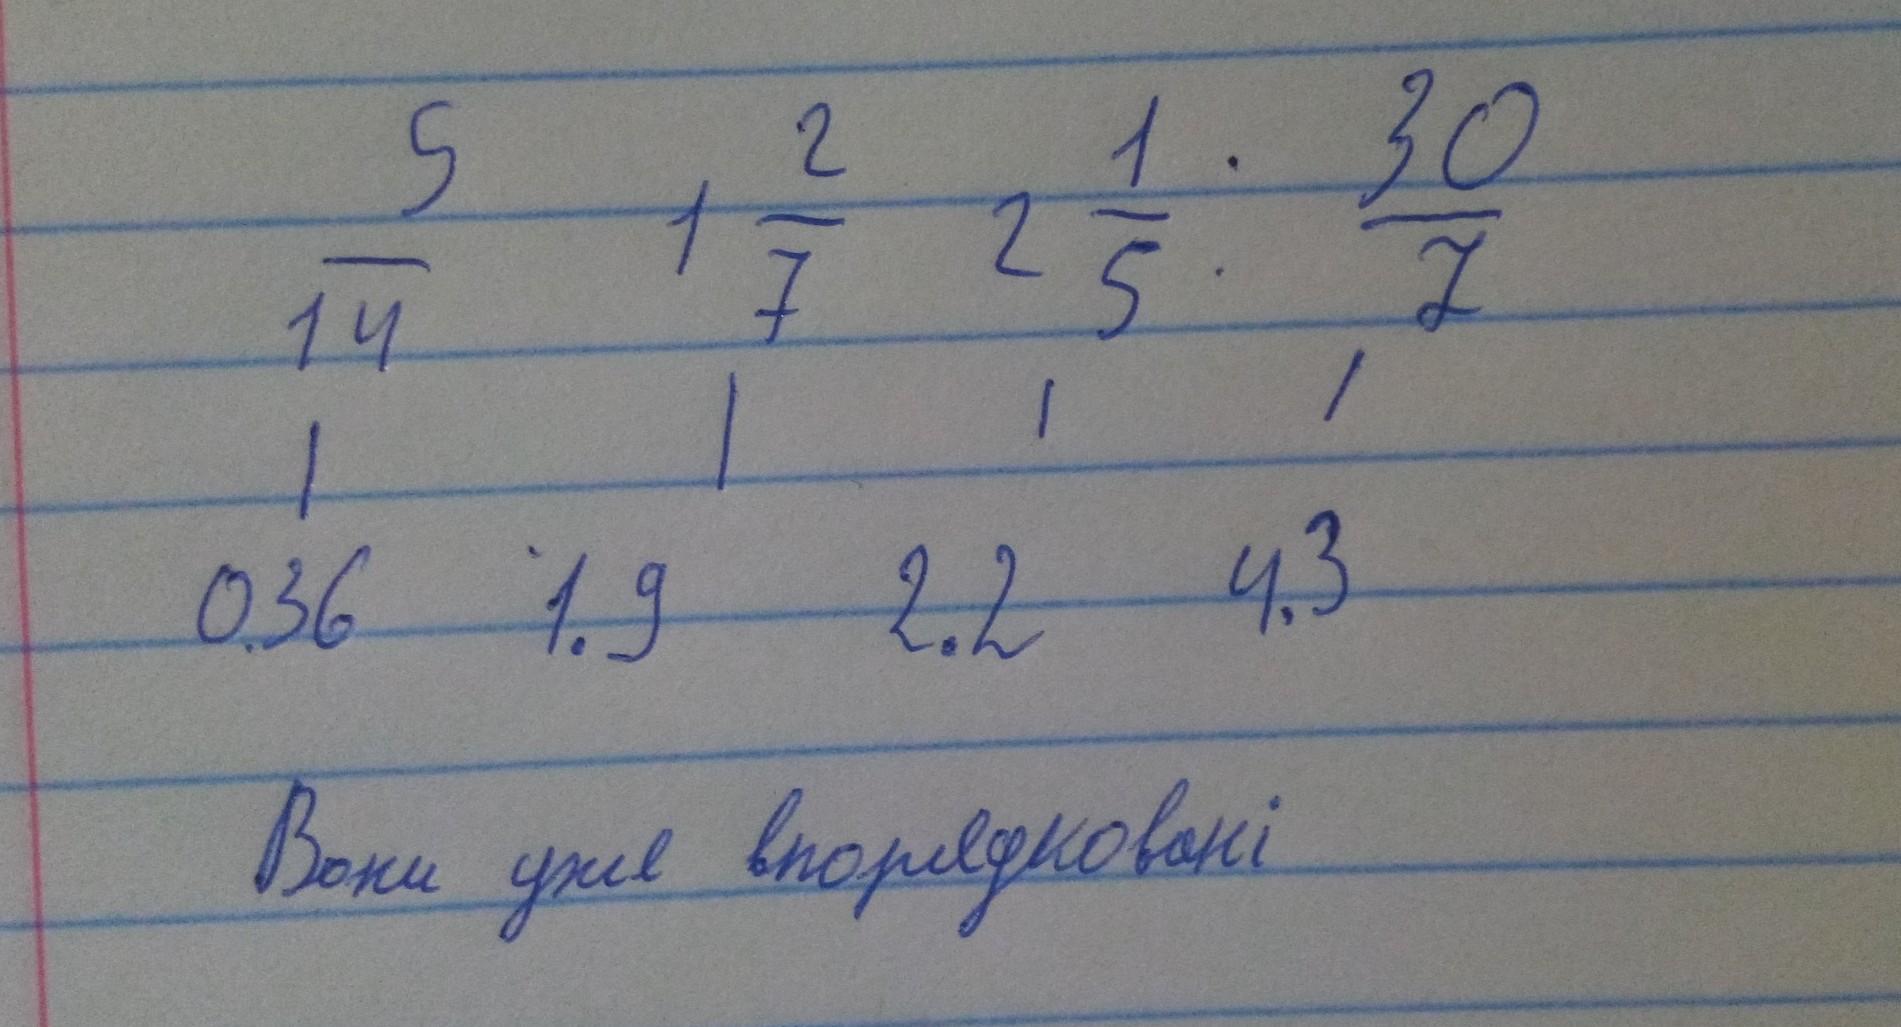 5/14 1 2/7 2 1/5 30/7
| | | |
0.36 1.9 2.2 4.3
Вони уже впорядковані